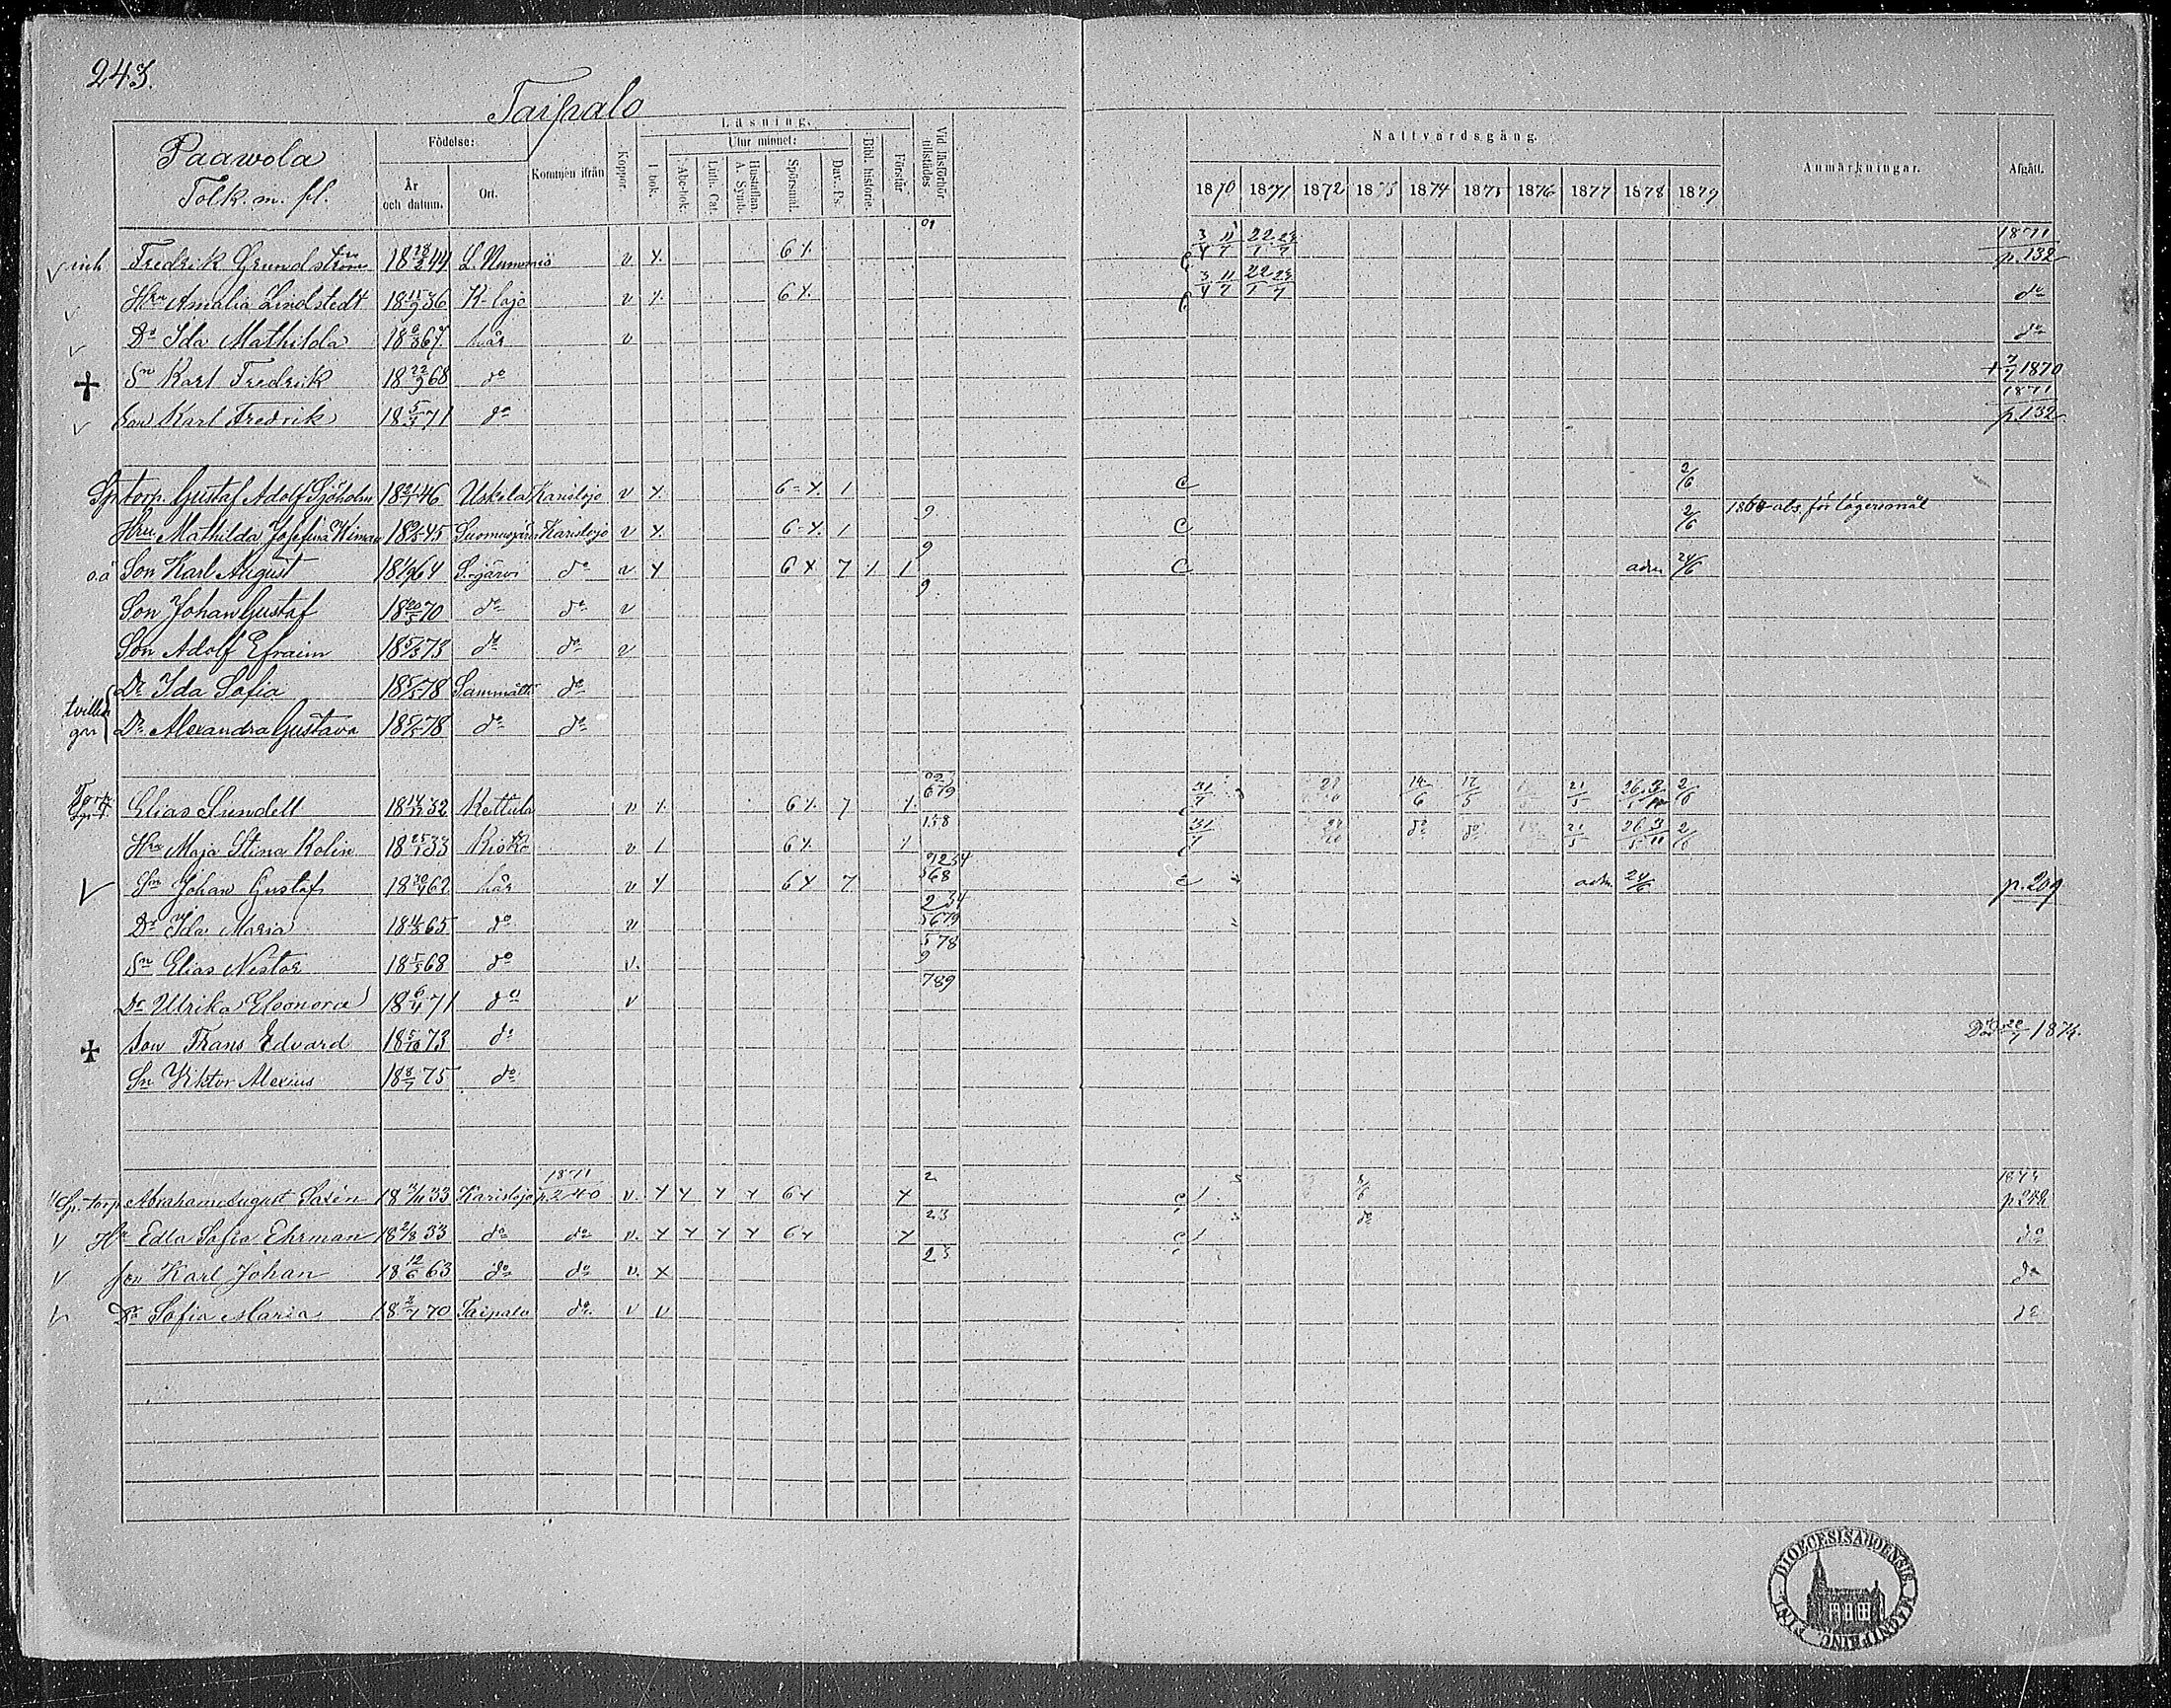 243.
Taipalo
Paawola
Tolk. m. fl.
Födelse:
År och datum.
Ort.
Kommen ifrån
Koppor.
Läsning.
I bok.
Utur minnet:
Abc-bok.
Luth. Cat.
Hustaflan. A. Symb.
Spörsmål.
Dav. Ps.
Bibl. historie.
Förstår
Vid läsförhör tillstädes
Nattvardsgång.
1870 1871 1872 1873 1874 1875 1876 1877 1878 1879
Anmärkningar.
Afgått.
inh Fredrik Grundström 18 18/2 44 L. Nummis v 6 3/4 11/7 22/1 23/7 1871 p. 132
Hru Amalia Lindstedt 18 11/9 36 K-lojo v 6 3/4 11/7 22/1 23/7 do
Dr Ida Mathilda 18 6/3 67 här v do
Sn Karl Fredrik 18 22/9 68 do + 7/7 1870
Son Karl Fredrik 18 5/3 71 do 1871 p. 132
Sp torp. Gustaf Adolf Sjöholm 46 Uskela Karislojo v 6 1 c 2/6
Hru Mathilda Josefina 45 Suomusjärvi Karislojo v 6 1 9 c 2/6 abs. för lägersmål
o.ä Son Karl August 64 S.järvi do v 6 7 1 1 9 c adm 24/6
Son Johan Gustaf 18 20/5 70 do do v 9
Son Adolf Efraim 73 do do v
tvillingar
Dr Ida Sofia 78 Sammatti do
Dr Alexandra Gustava 78 do do
Torp. Elias Sundell 32 Kettula v 6 7 679 31/7 14/6 17/5 21/5 2/6
Hru Maja Stina Rolin 18 25/1 33 Kisko v 1 6 158 31/7 do do 21/5 2/6
Sn Johan Gustaf 18 30/4 62 här v 6 7 568 adm 24/6 p. 209
Dr Ida Maria 65 do v 234 5679
Sn Elias Nestor 68 do v. 578 9
Dr Ulrika Eleonora 18 6/4 71 do v 789
Son Frans Edvard 18 5/10 73 do
Sn Viktor Alexius 18 8/7 75 do
Sp. torp Abraham August Saxén 33 Karislojo 1871 p. 240 v. 6 2 c
Hu Edla Sofia Ehrman 18 2/8 33 do do v. 6 23 c do do
Son Karl Johan 18 12/6 63 do do v. x 23 do
Dr Sofia Maria 18 2/7 70 Taipalo do v v do
DIOECESIS ABOENSIS MAGNI PRINC. FINL.